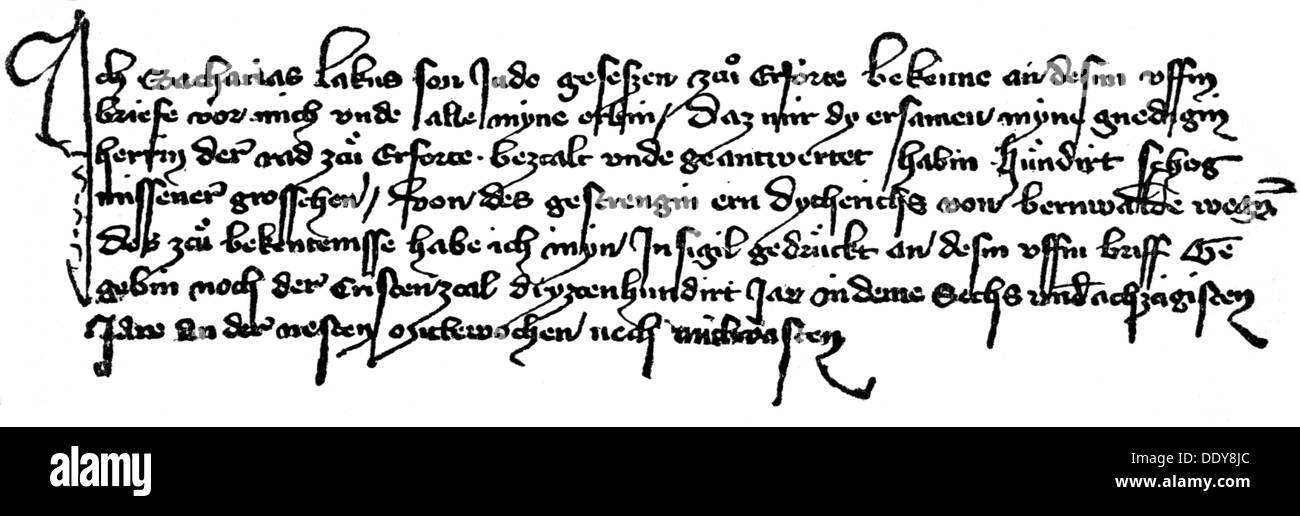 Ich Zacharias lakus son Jude geseszen zců Erforte bekenne an desin uffin
briefe vor mich vnde alle myne erbin / Daz mir dy ersamen myne gnedigin
herrin der rad zců Erforte bezcalt vnde geantwertet habin hůndirt schog
missener grosschen / von des gestrengin ern Dytherichs von bernwalde wegin
Des zců bekentenisse habe ich myn Insigil gedrůckt an desin uffin briff Ge
gebin noch der Cristenzcal Dryzcenhundirt Jar in deme Sechs und achzcigisten
Jare an der nesten mittewochen noch mitvasten
alamy
alamy
Image ID: DDY8JC
www.alamy.com